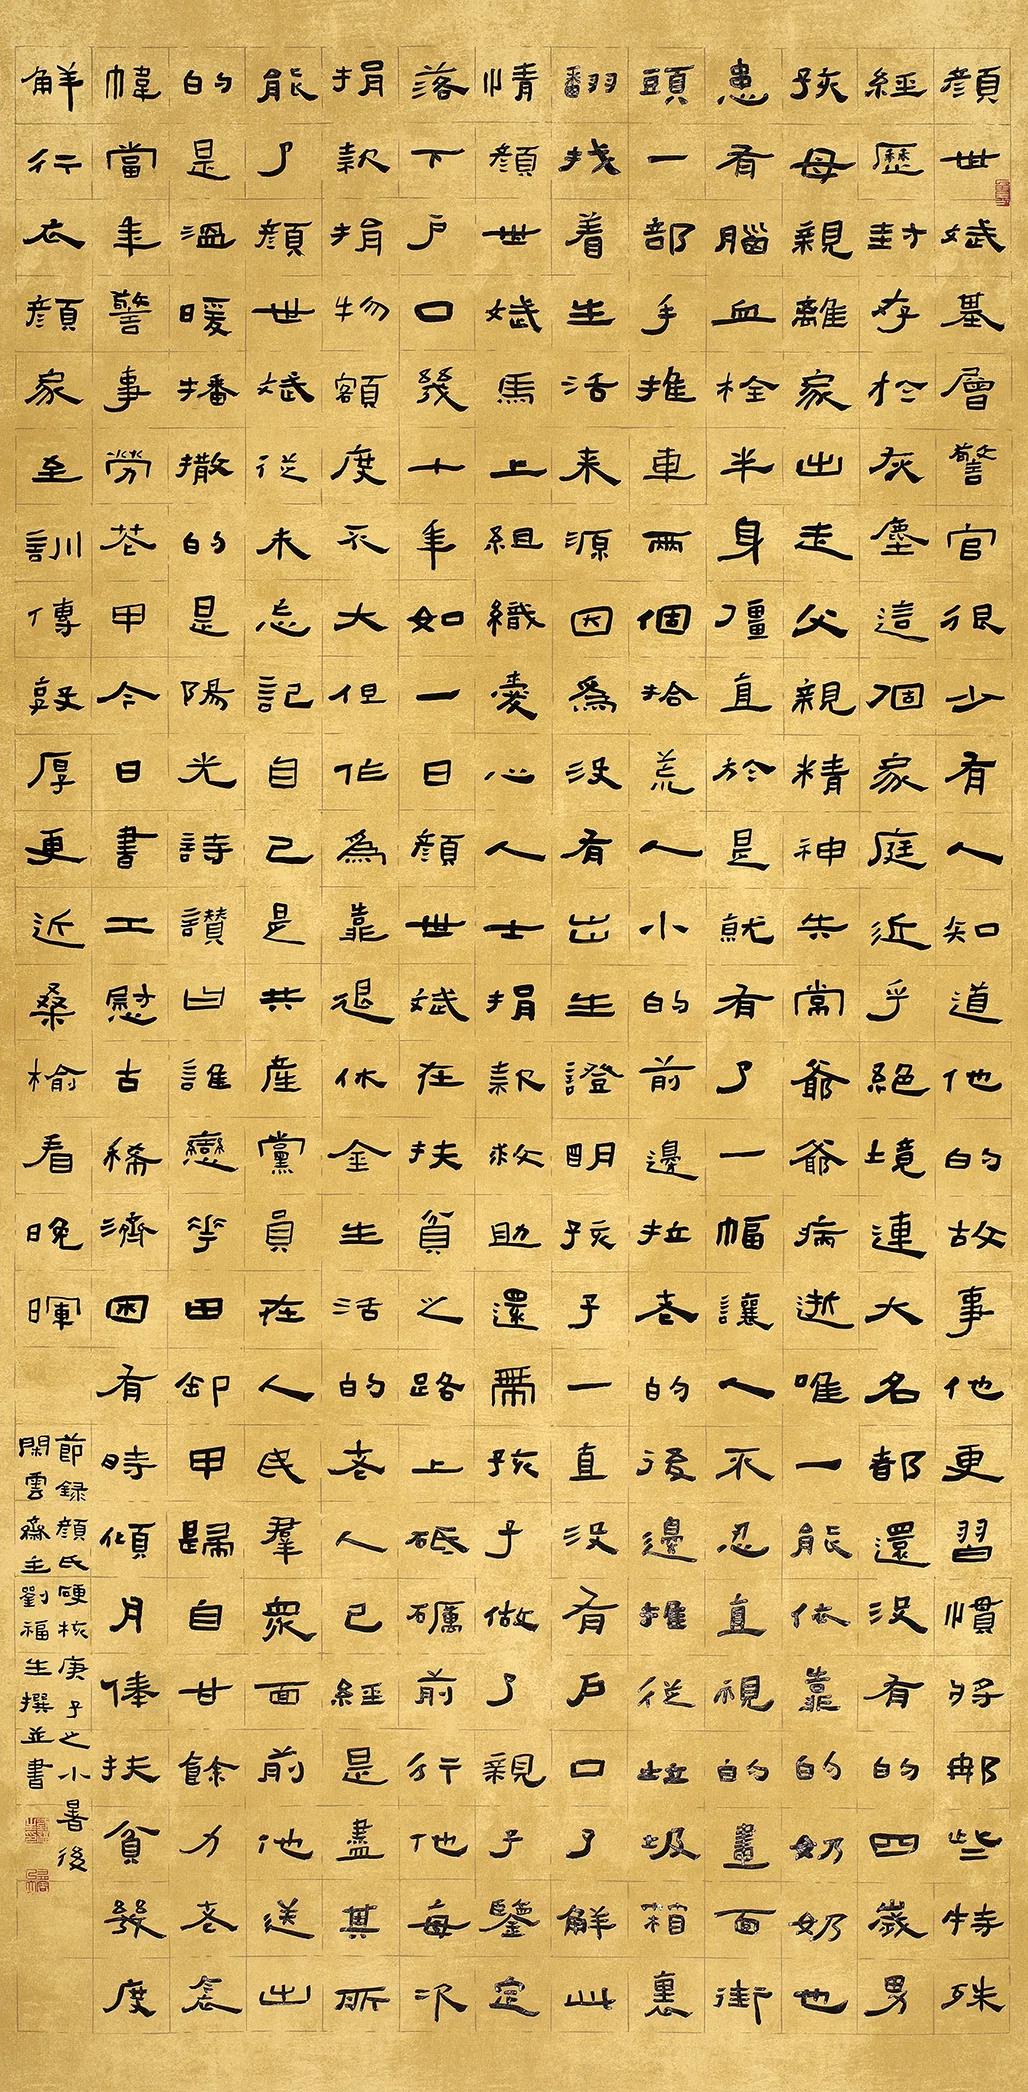 顏世斌基層警官很少有人知道他的故事他更習慣將那些特殊
經歷封存於灰塵這個家庭近乎絕境連大名都還没有的四歲男
孩母親離家出走父親精神失常爺爺病逝唯一能依靠的奶奶也
患有腦血栓半身僵直於是就有了一幅讓人不忍直視的畫面街
頭一部手推車兩個拾荒人小的前邊拉老的後邊推從垃圾箱裏
翻找着生活来源因爲没有出生證明孩子一直没有戶口了解此
情顏世斌馬上組織愛心人士捐款救助還帶孩子做了親子鑒定
落下戶口幾十年如一日顏世斌在扶貧之路上砥礪前行他每次
捐款捐物額度不大但作為靠退休金生活的老人已經是盡其所
能了顏世斌從未忘記自己是共產黨員在人民羣衆面前他送出
的是溫暖播撒的是陽光詩讚曰誰戀華田卸甲歸自甘餘力老
幃當年警事勞花甲今日書工慰古稀濟困有時傾月俸扶貧幾度
解行衣顏家至訓傳敦厚更近桑榆看晚暉
節録顏氏硬核庚子之小暑後
閑雲齋主劉福生撰並書